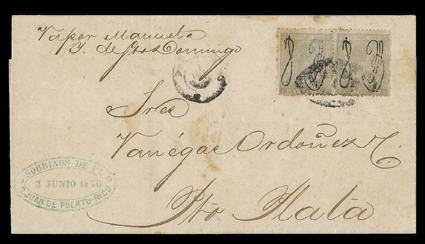 Vapor Manuela
S. de Sto Domingo
Sres
Vanégas Ordoñez C.
Pto Plata
SOBRINOS DE
3 JUNIO 18
JUAN DE PUERTO-RICO